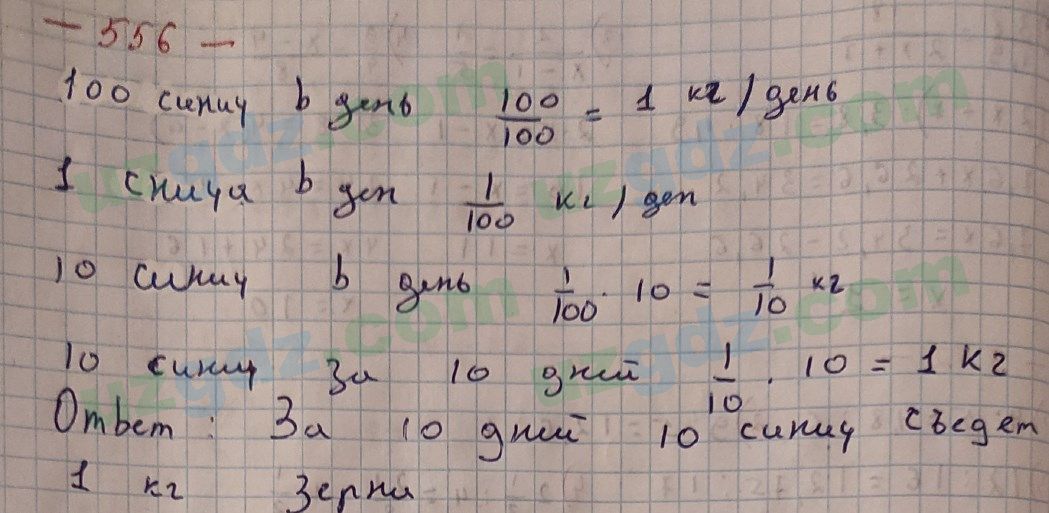 - 556 -
100 синиц в день 100/100 = 1 кг/день
1 сница в ден 1/100 кг/ден
10 синиц в день 1/100 · 10 = 1/10 кг
10 синиц за 10 дней 1/10 · 10 = 1 кг
Ответ: За 10 дней 10 синиц съедет
1 кг зерна
uzgdz.com
uzgdz.com
uzgdz.com
uzgdz.com